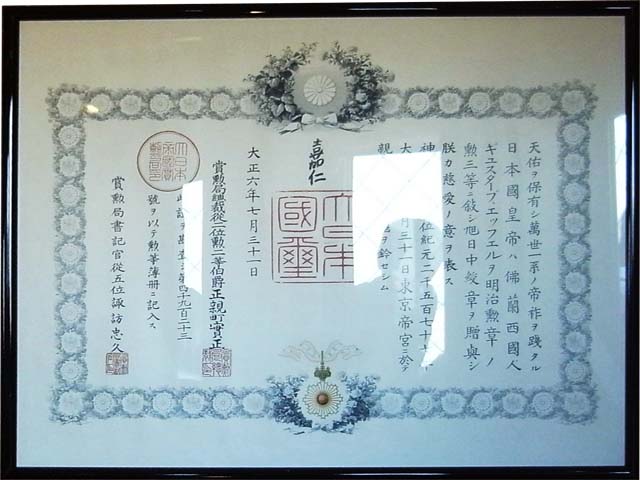 天佑ヲ保有シ萬世一系ノ帝祚ヲ踐タル
日本國皇帝ハ佛蘭西國人
ギユスターブ、エツフエルヲ明治勲章ノ
勲三等ニ敍シ旭日中綬章ヲ贈與シ
朕カ慈愛ノ意ヲ表ス
神 位紀元二千五百七十七
大 月三十一日東京帝宮ニ於テ
親 ヲ鈐セシム
嘉仁
大日本國璽
大正六年七月三十一日
賞勲局總裁從二位勲二等伯爵正親町實正
此證ヲ勘査シ第四千九百二十三
號ヲ以テ勲等簿冊ニ記入ス
賞勲局書記官從五位諏訪忠久